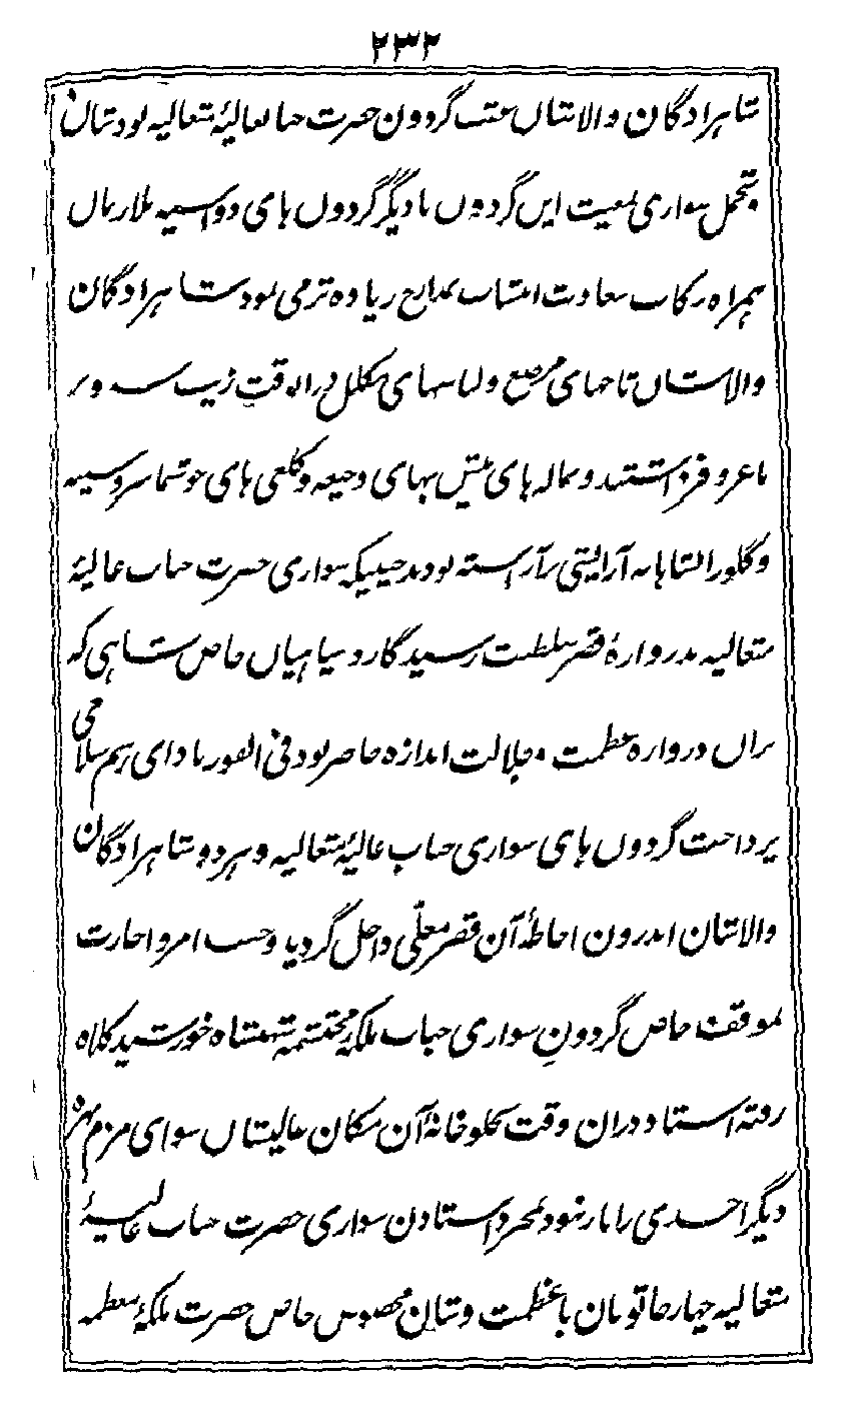 ۲۳۲
شاهزادگان والاشان عقب گردون حضرت جنابعالیهٔ متعالیه بود شان
تجمل سواری بمعیت این گردون با دیگر گردون های دو اسپه ملازمان
همراه رکاب سعادت انتساب بمدارج زیاده تر می بود شاهزادگان
والاشان تاجهای مرصع و لباسهای مکلل دران وقت زیب سر و بر
با عز و فر داشتند و حماله های بیش بهای وجیغه و کلغی های خوشنما سر و سینه
و گلو را شاهانه آرایشی برآراسته بودند حینیکه سواری حضرت جناب عالیهٔ
متعالیه بدروازهٔ قصر سلطنت رسید گارد سپاهیان خاص شاهی که
بران دروازه عظمت و جلالت اندازه حاضر بود فی الفور بادای رسم سلامی
پرداخت گردون های سواری جناب عالیهٔ متعالیه و هر دو شاهزادگان
والاشان اندرون احاطهٔ آن قصر معلّی داخل گردید و حسب امر و اجازت
بموقف خاص گردونِ سواری جناب ملکهٔ محتشمه شهنشاه خورشید کلاه
رفته استاد دران وقت بجلوخانهٔ آن مکان عالیشان سوای مردم
دیگر احدی را بار نبود بمجرد استادن سواری حضرت جناب عالیهٔ
متعالیه چهار خاتونان با عظمت و شان مخصوص خاص حضرت ملکهٔ معظمه